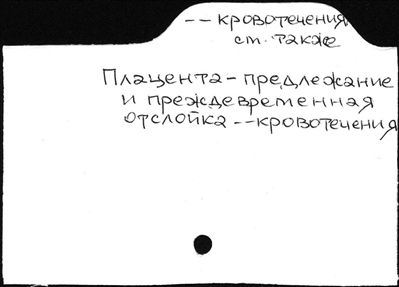 -- кровотечения
см. также
Плацента - предлежание
и преждевременная
отслойка -- кровотечения